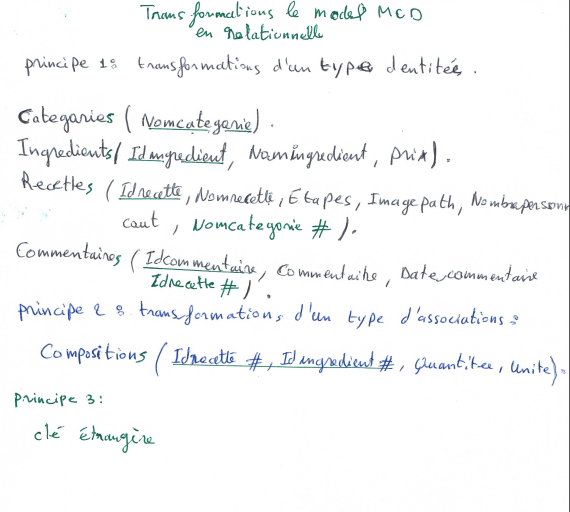 Transformations le model MCD
en relationnelle
principe 1: transformations d'un type dentités.
Categories (Nomcategorie).
Ingredients (Idingredient, Nomingredient, prix).
Recettes (Idrecette, Nomrecette, Etapes, Image path, Nombrepersonn
cout, Nomcategorie #).
Commentaires (Idcommentaire, Commentaire, Date commentaire
Idrecette #).
principe 2: transformations d'un type d'associations:
Compositions (Idrecette #, Idingredient #, Quantitee, Unite).
principe 3:
clé étrangère